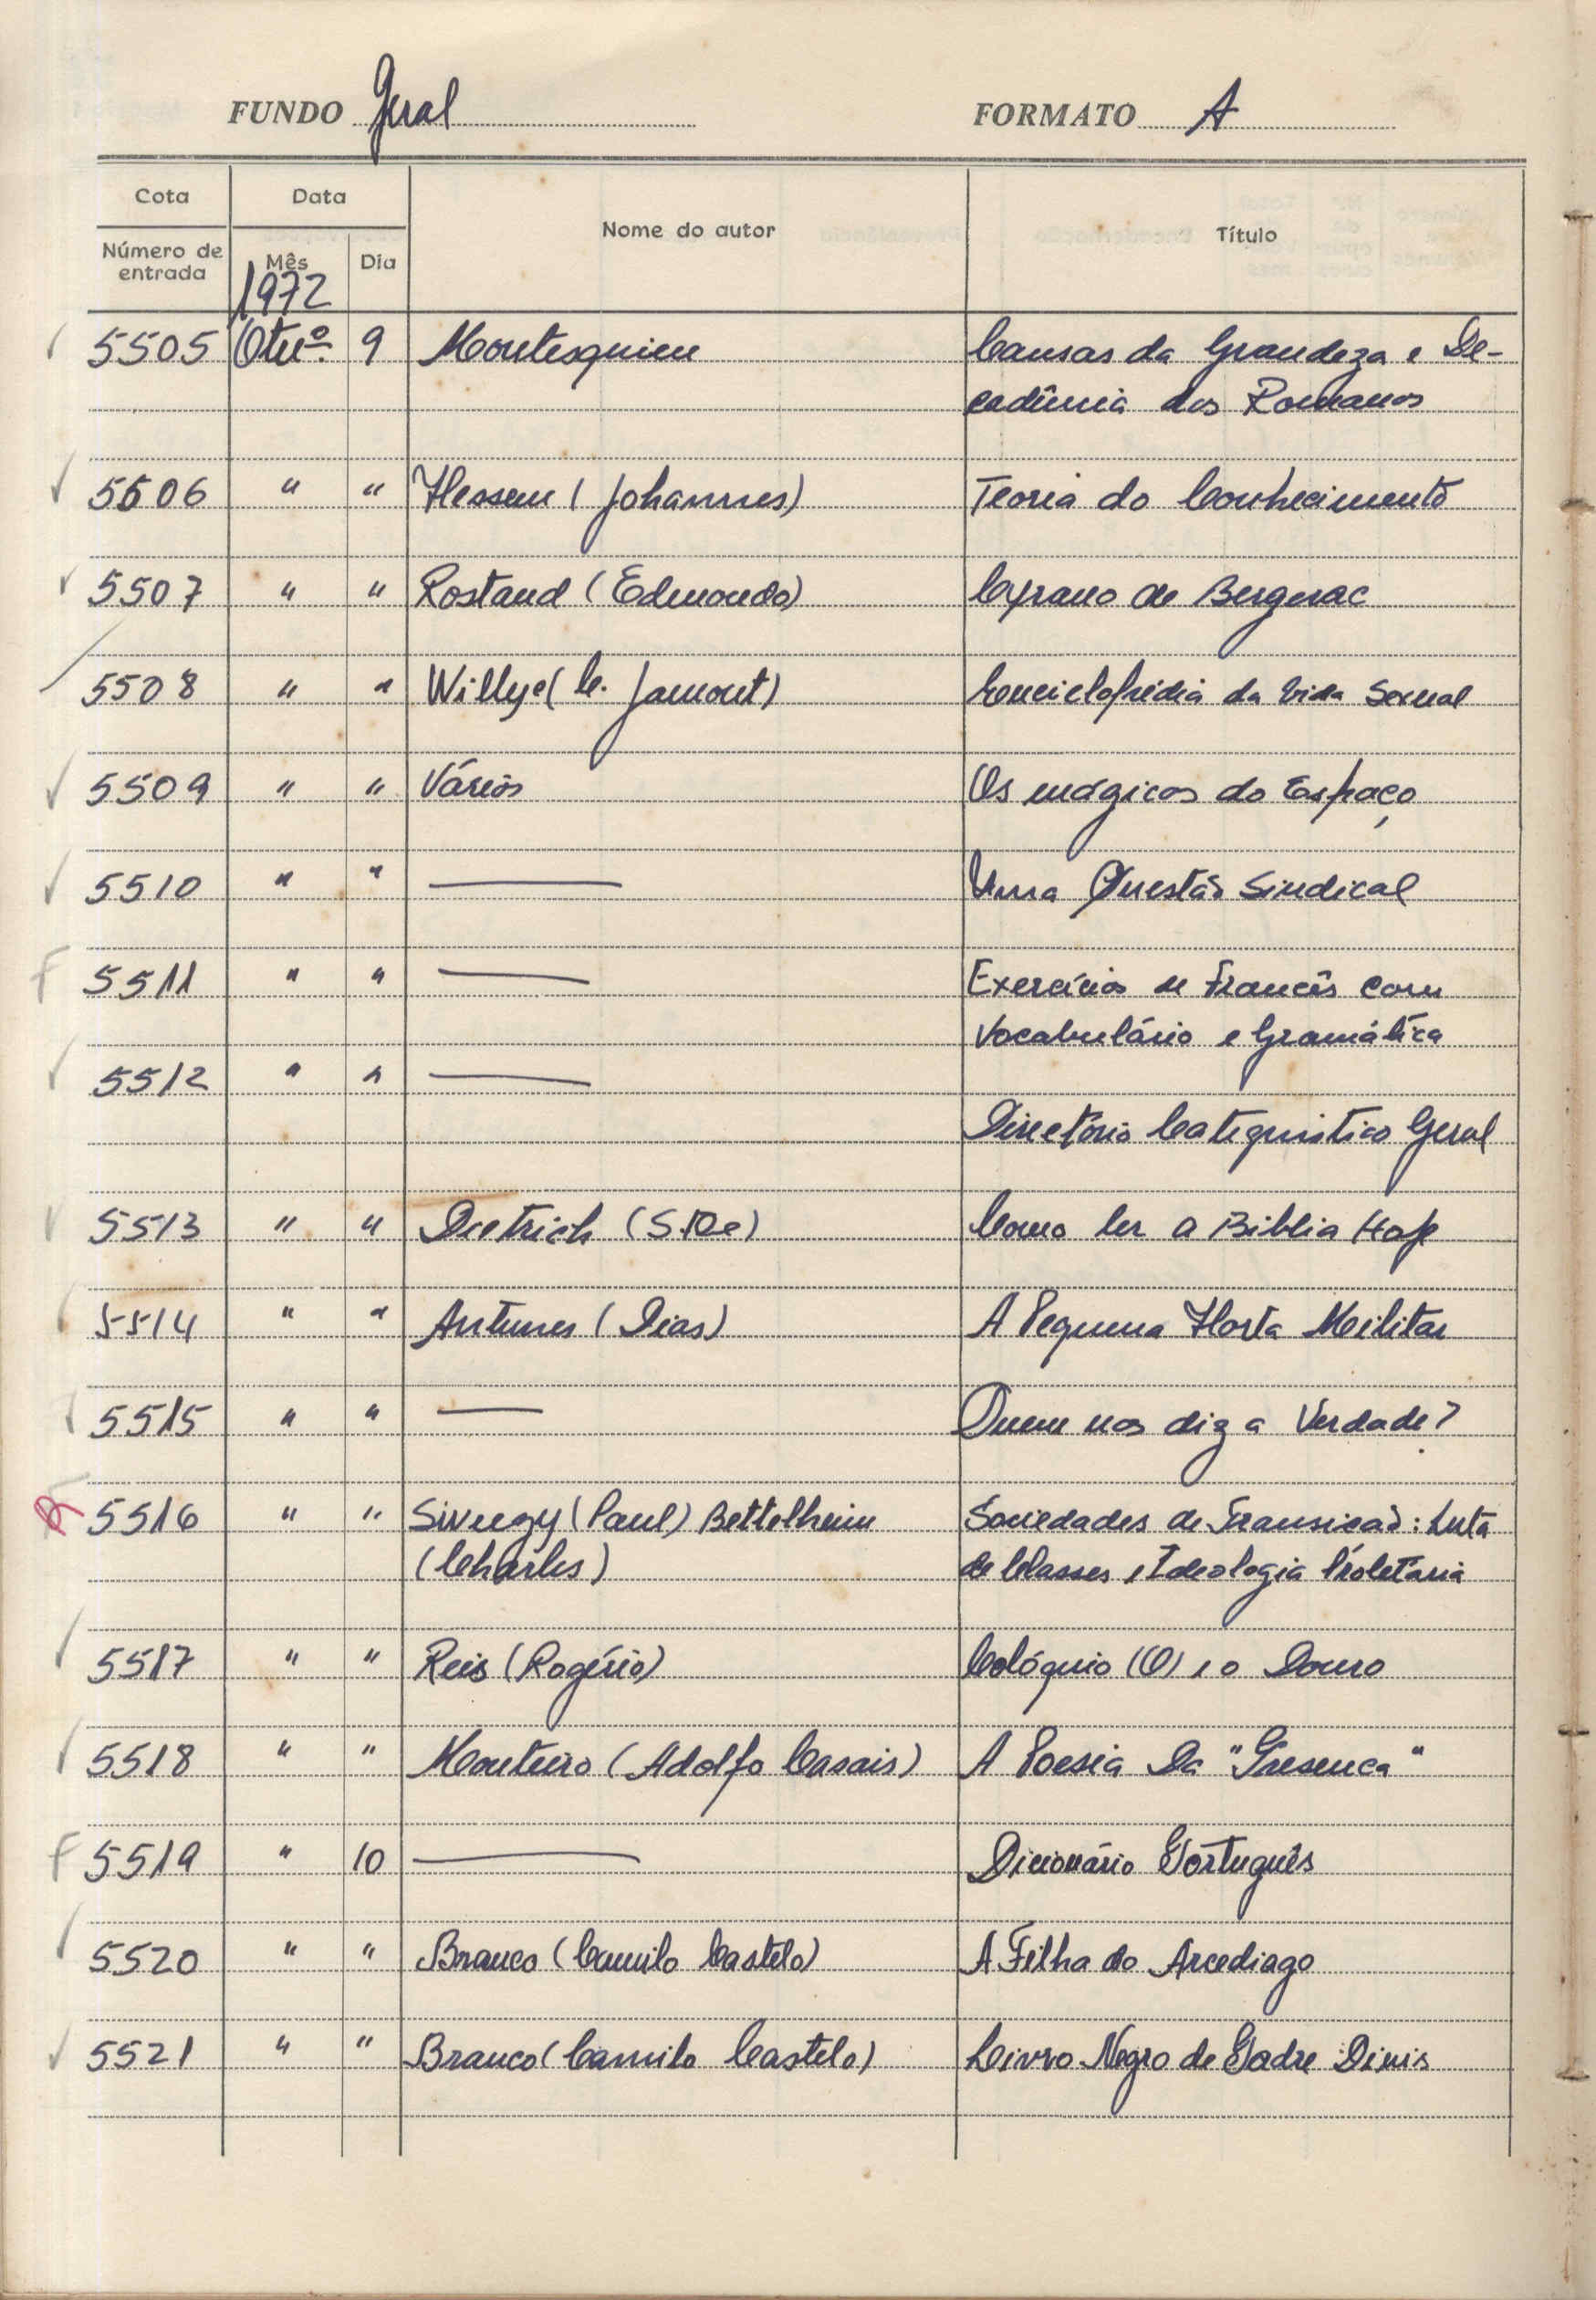 FUNDO Geral FORMATO A
Cota Data Nome do autor Título
Número de entrada Mês Dia
1972
5505 Otuº 9 Montesquieu Causas da Grandeza e De-
cadência dos Romanos
5506 " " Hessen (Johannes) Teoria do Conhecimento
5507 " " Rostand (Edmondo) Cyrano de Bergerac
5508 " " Willye (C. Jamont) Enciclopédia da Vida Sexual
5509 " " Vários Os mágicos do Espaço
5510 " " — Uma Questão Sindical
5511 " " — Exercícios de Francês com
Vocabulário e Gramática
5512 " " —
Directório Catequístico Geral
5513 " " Dietrich (S. De) Como ler a Biblia Hoje
5514 " " Antunes (Dias) A Pequena Horta Militar
5515 " " — Quem nos diz a Verdade?
5516 " " Sweezy (Paul) Bettelheim Sociedades de Transicão: Luta
(Charles) de Classes e Ideologia Proletária
5517 " " Reis (Rogério) Colóquio (O) e o Douro
5518 " " Monteiro (Adolfo Casais) A Poesia Da "Presenca"
5519 " 10 — Dicionário Português
5520 " " Branco (Camilo Castelo) A Filha do Arcediago
5521 " " Branco (Camilo Castelo) Livro Negro de Padre Dinis